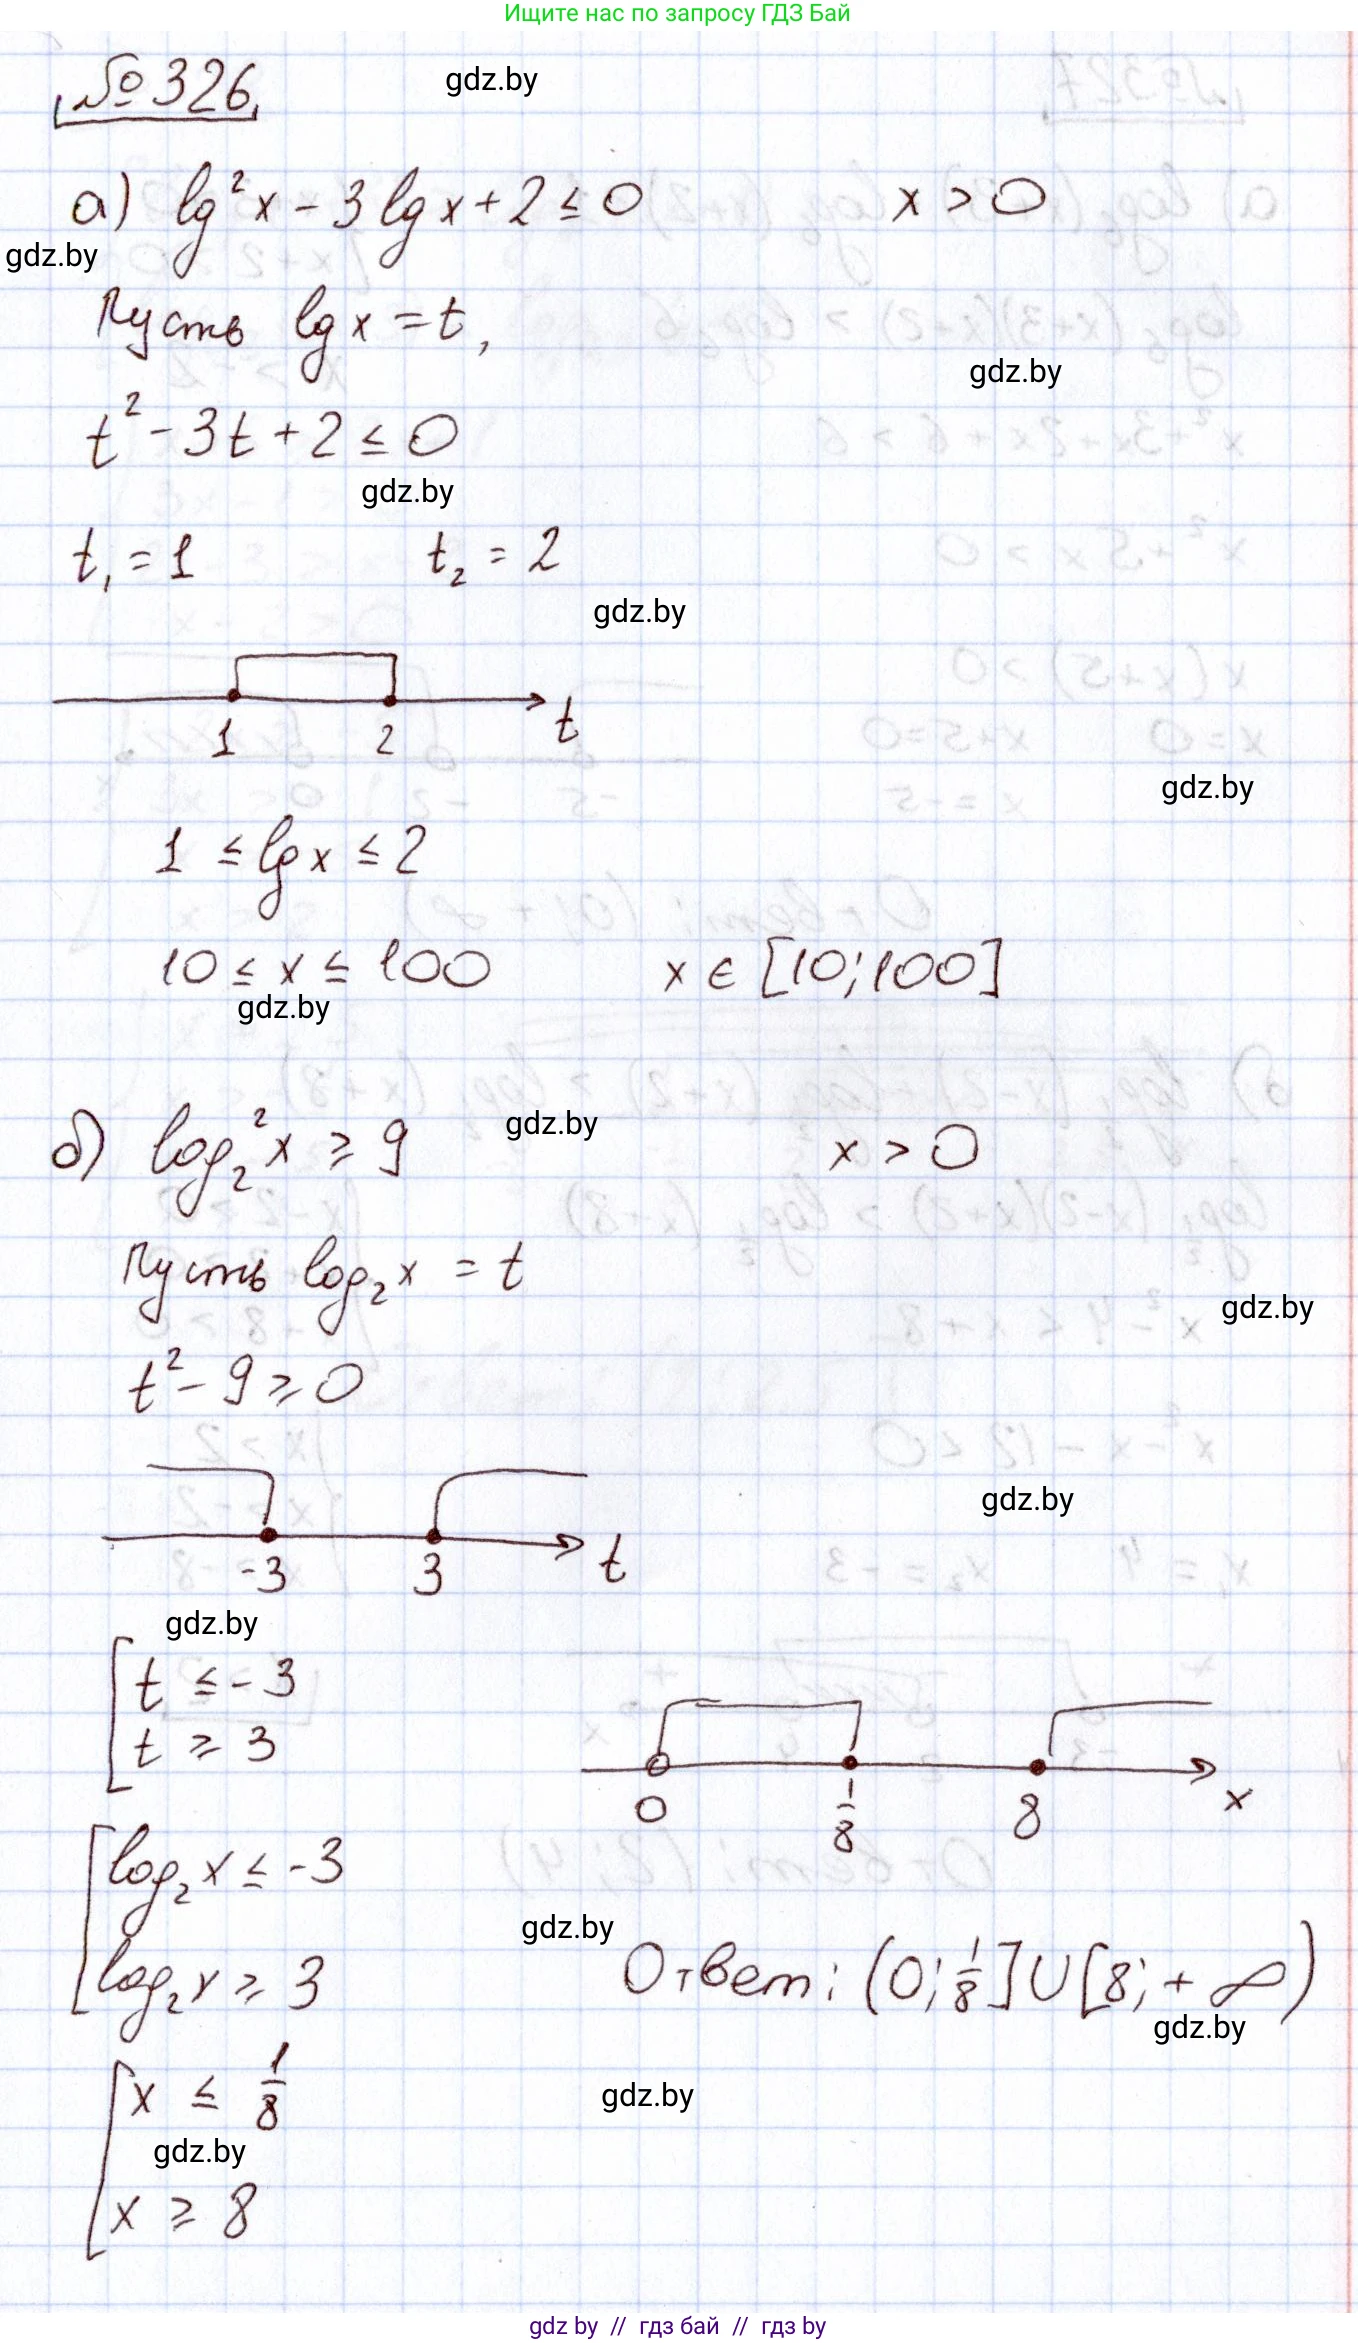 Ищите нас по запросу ГДЗ Бай
№326
gdz.by
а) lg²x - 3lgx + 2 ≤ 0 x > 0
gdz.by
Пусть lgx = t,
gdz.by
t² - 3t + 2 ≤ 0
gdz.by
t₁ = 1 t₂ = 2
gdz.by
1 2 t
gdz.by
1 ≤ lgx ≤ 2
10 ≤ x ≤ 100 x ∈ [10; 100]
gdz.by
б) log₂²x ≥ 9 x > 0
gdz.by
Пусть log₂x = t
gdz.by
t² - 9 ≥ 0
gdz.by
-3 3 t
gdz.by
t ≤ -3
t ≥ 3
0 1/8 8 x
log₂x ≤ -3
gdz.by
log₂x ≥ 3
Ответ: (0; 1/8] ∪ [8; +∞)
gdz.by
x ≤ 1/8
gdz.by
gdz.by
x ≥ 8
gdz by // гдз бай // гдз by